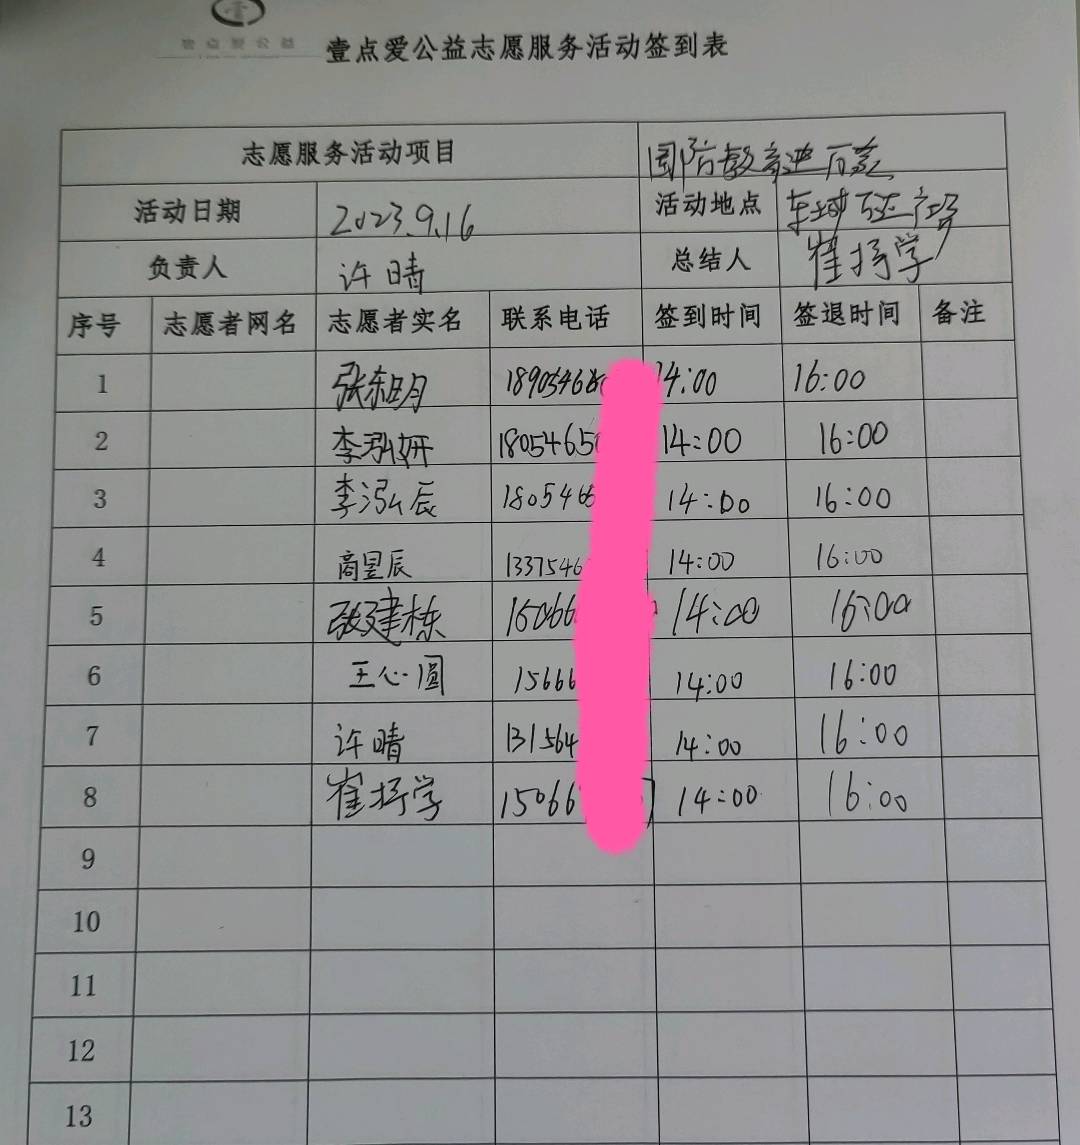 壹点爱公益
壹点爱公益志愿服务活动签到表
志愿服务活动项目 国防教育进万家
活动日期 2023.9.16 活动地点 东城万达广场
负责人 许晴 总结人 崔扬学
序号 志愿者网名 志愿者实名 联系电话 签到时间 签退时间 备注
1 张东明 189054686 14:00 16:00
2 李泓妍 18054650 14:00 16:00
3 李泓辰 1805466 14:00 16:00
4 商昱辰 1337546 14:00 16:00
5 张建栋 15066 14:00 16:00
6 王心圆 15666 14:00 16:00
7 许晴 131564 14:00 16:00
8 崔扬学 15066 14:00 16:00
9
10
11
12
13